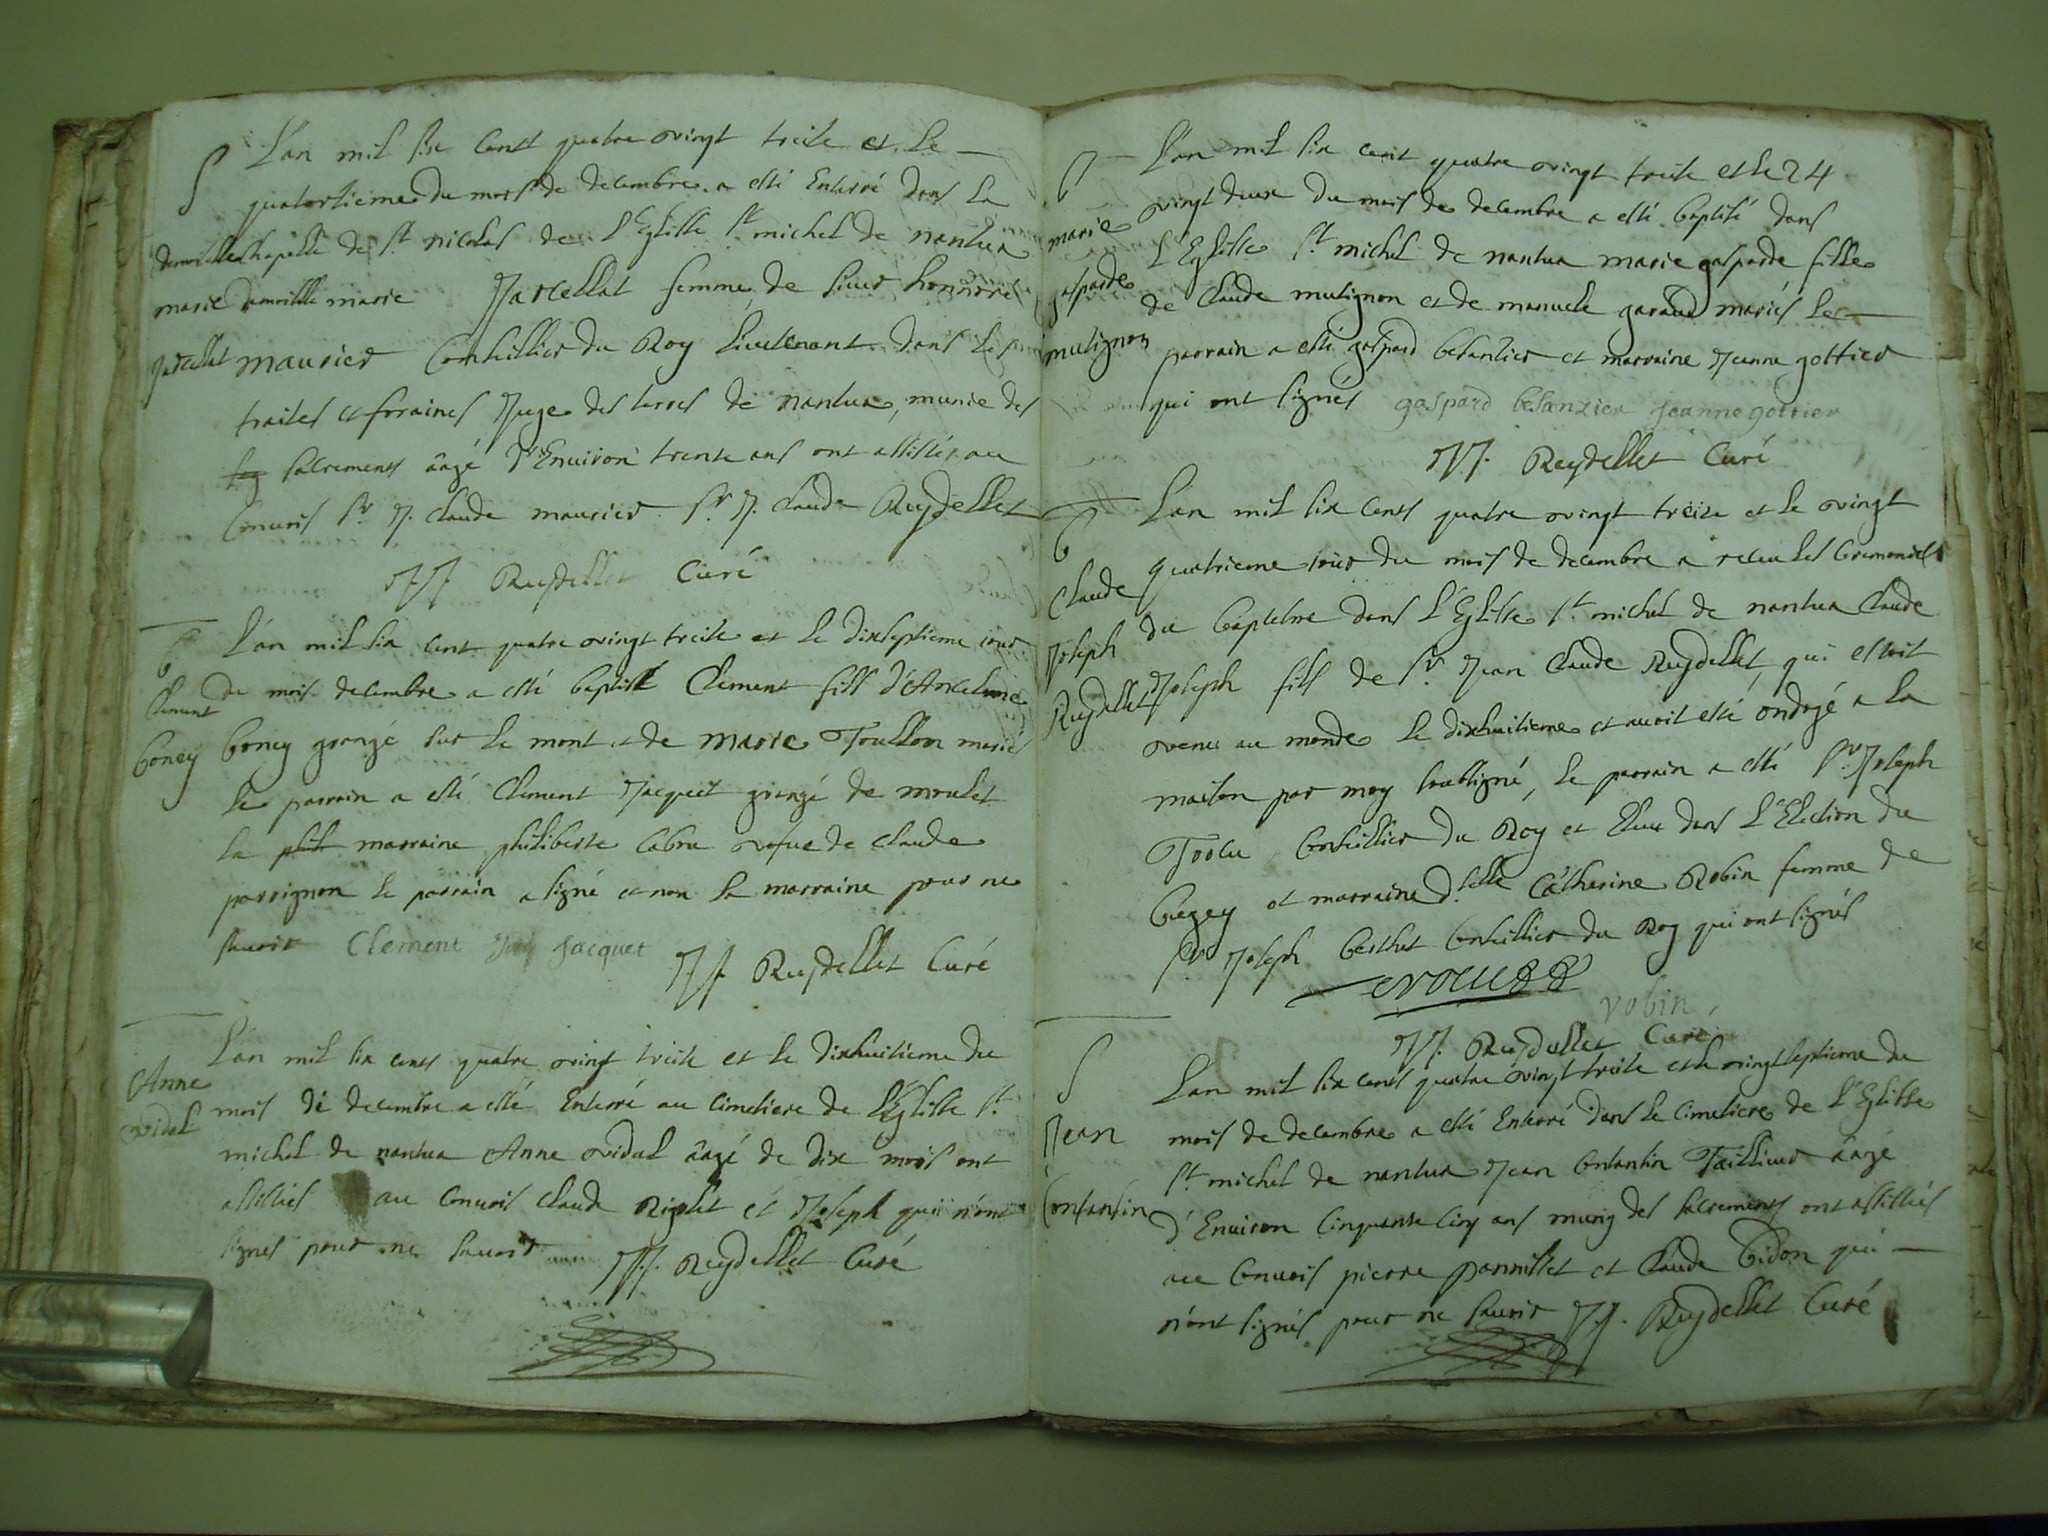 S L'an mil six cent quatre vingt treise et le
quatorsieme du mois de decembre a esté Enterré dans la
damoiselle Chapelle de St nicolas de l'Eglisse St michel de nantua
marie damoiselle marie Jarcellat femme de sieur honnoré
Jarcellat maurier Conseillier du Roy Lieutenant dans les
traites et foraines Juge des terres de nantua, munie des
sacrements âagé d'Enuiron trente ans ont assistés au
Conuois Sr J. Claude maurier Sr J. Claude Reydellet
J J. Reydellet Curé
b L'an mil six cent quatre vingt treise et le dixseptieme iour
Clement du mois decembre a esté baptisé Clement fils d'Anselme
boney boney grangé sur le mont et de marie Toullon mariés
le parrain a esté Clement Jacquet grangé de
la marraine philiberte Cabru vefue de Claude
parsignon le parrain a signé et non la marraine pour ne
sauoir Clement Jacquet J J. Reydellet Curé
Anne L'an mil six cens quatre vingt treise et le dixhuitieme du
vidal mois de decembre a esté Enterré au Cimetiere de L'Eglisse St.
michel de nantua Anne vidal âagé de dix mois ont
assistés au Conuois Claude et Joseph qui n'ont
signés pour ne sauoir J J. Reydellet Curé
b L'an mil six cent quatre vingt treise et le 24
marie vingt deux du mois de decembre a esté baptisé dans
gasparde L'Eglisse St michel de nantua marie gasparde fille
mutignon de Claude mutignon et de manuele garaud mariés le
parrain a esté gaspard besansier et marraine Jeanne gottier
qui ont signés gaspard besanzier Jeanne gottier
J J. Reydellet Curé
b L'an mil six cens quatre vingt treise et le vingt
Claude quatrieme iour du mois de decembre a receu les Ceremonies
Joseph du baptesme dans L'Eglisse St michel de nantua Claude
Reydellet Joseph fils de Sr Jean Claude Reydellet, qui estoit
venu au monde le dixhuitieme et auoit esté ondoyé a la
maison par moy soubsigné, le parrain a esté Sr Joseph
Conseillier du Roy et Eleu dans l'Election du
bugey et marraine Dlle Catherine Robin femme de
Sr Joseph berthet Conseillier du Roy qui ont signés
robin
J J. Reydellet Curé
S L'an mil six cens quatre vingt treise et le vingtseptieme du
Jean mois de decembre a esté Enterré dans le Cimetiere de L'Eglisse
Constantin St michel de nantua Jean Constantin Taillieur âagé
d'Enuiron Cinquante Cinq ans muny des sacrements ont assistés
au Conuois pierre et Claude bidon qui
n'ont signés pour ne sauoir J J. Reydellet Curé